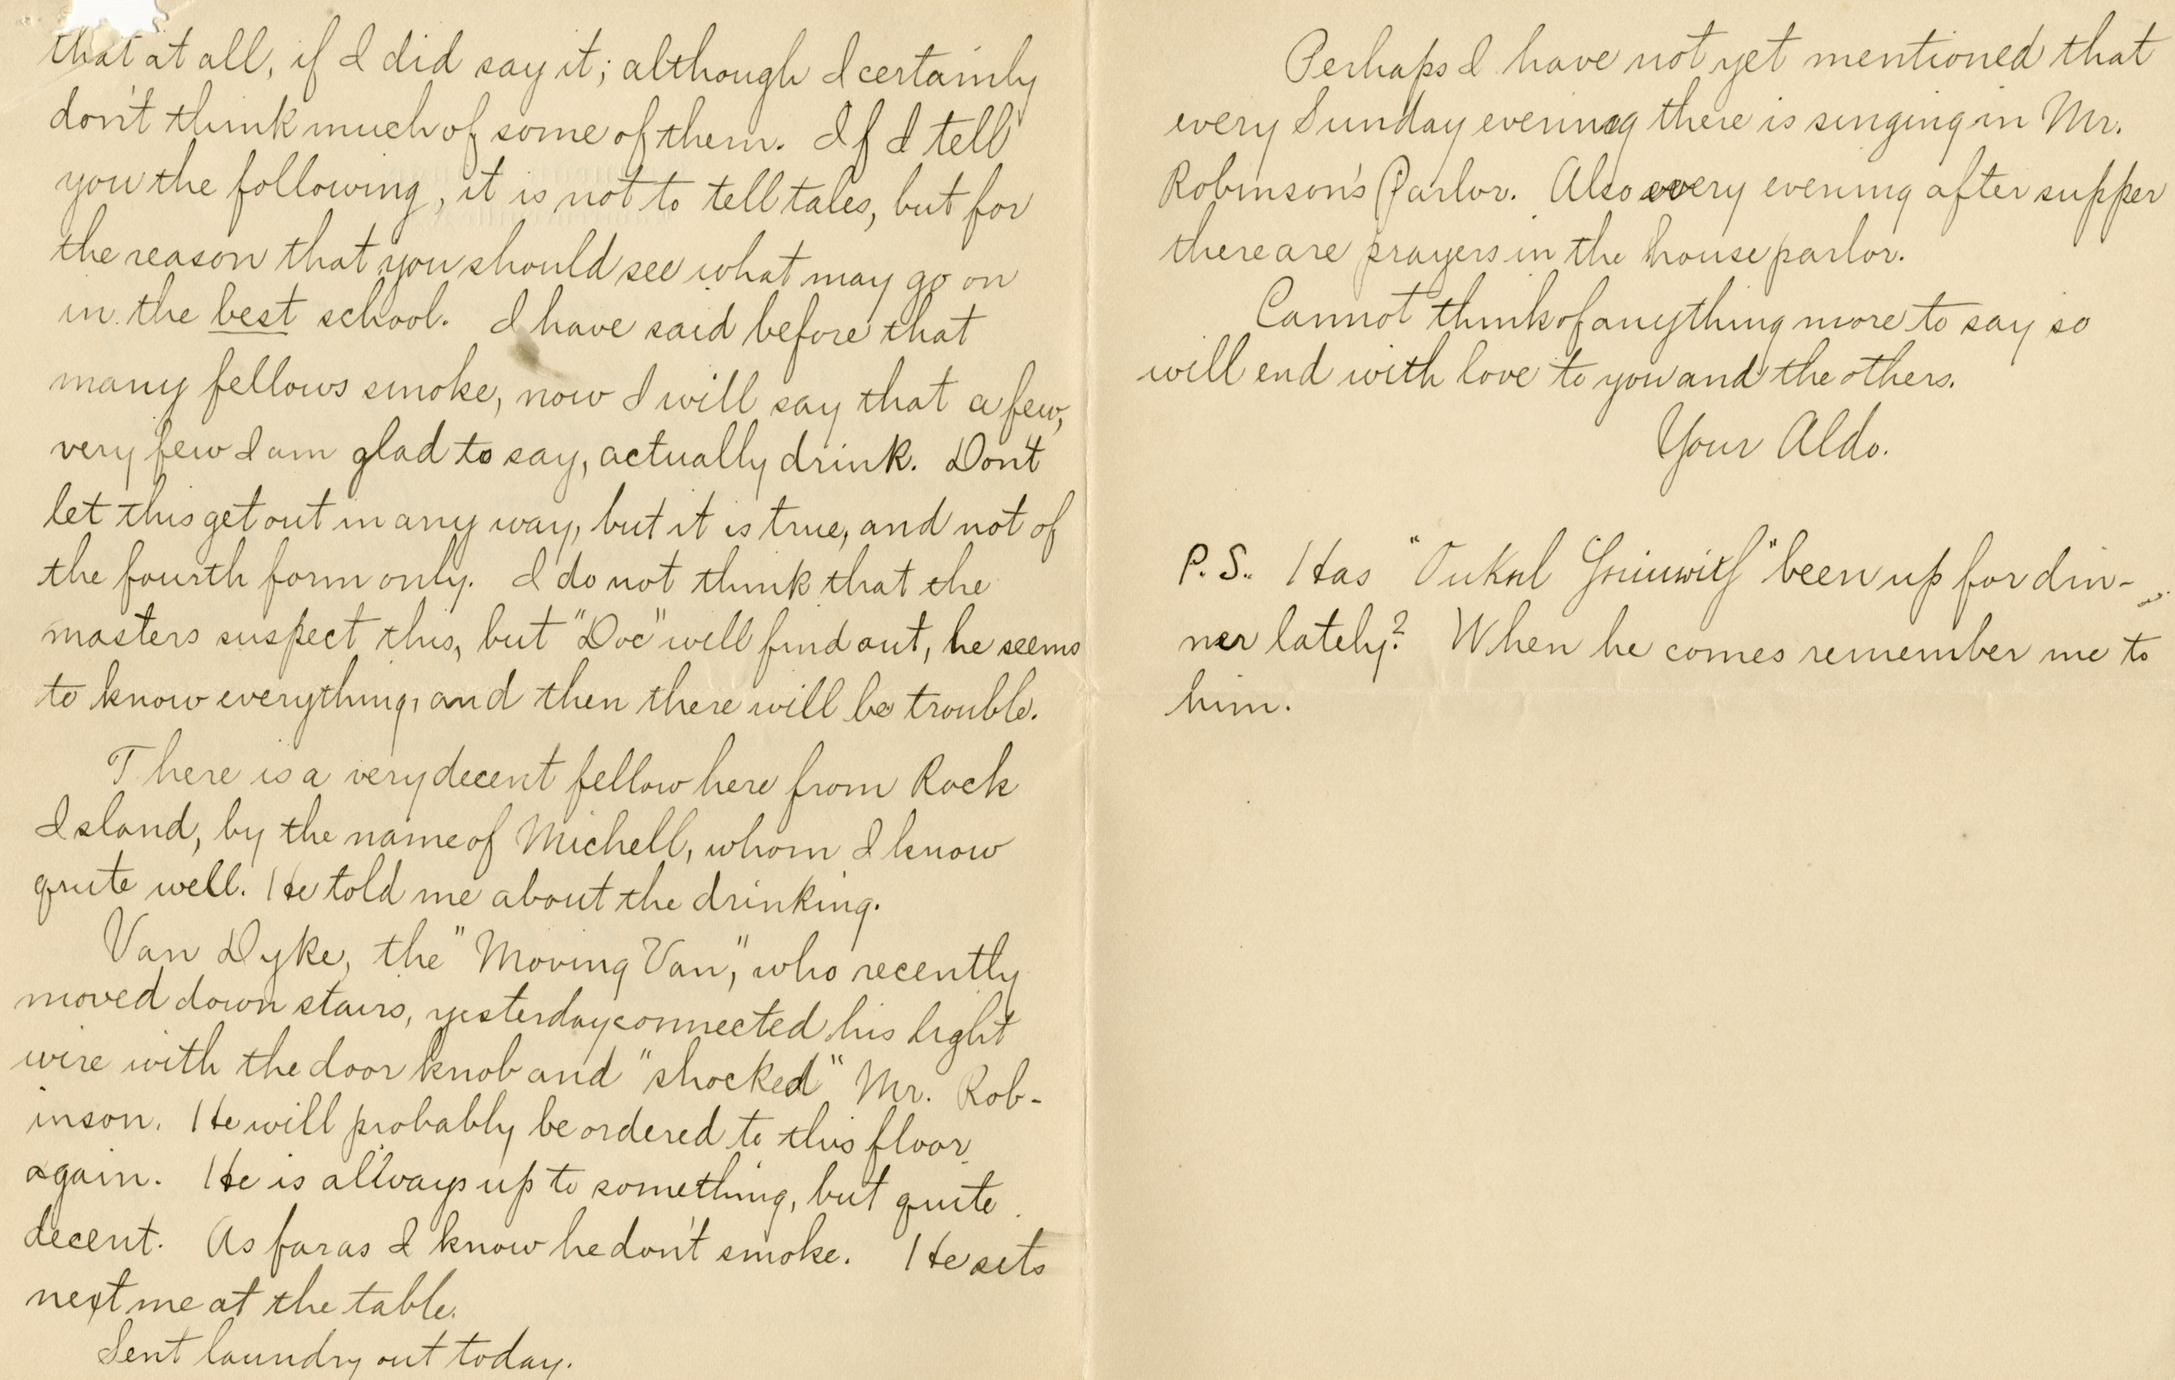 that at all, if I did say it; although I certainly
don't think much of some of them. If I tell
you the following, it is not to tell tales, but for
the reason that you should see what may go on
in the best school. I have said before that
many fellows smoke, now I will say that a few,
very few I am glad to say, actually drink. Don't
let this get out in any way, but it is true, and not of
the fourth form only. I do not think that the
masters suspect this, but "Doc" will find out, he seems
to know everything, and then there will be trouble.
There is a very decent fellow here from Rock
Island, by the name of Michell, whom I know
quite well. He told me about the drinking.
Van Dyke, the "Moving Van", who recently
moved down stairs, yesterday connected his light
wire with the door knob and "shocked" Mr. Rob-
inson. He will probably be ordered to this floor
again. He is allways up to something, but quite
decent. As far as I know he don't smoke. He sits
next me at the table.
Sent laundry out today.
Perhaps I have not yet mentioned that
every Sunday evening there is singing in Mr.
Robinson's Parlor. Also every evening after supper
there are prayers in the house parlor.
Cannot think of anything more to say so
will end with love to you and the others.
Your Aldo.
P.S. Has "Onkel" been up for din-
ner lately? When he comes remember me to
him.